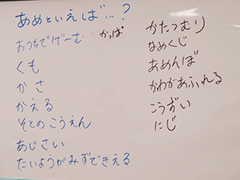 あめといえば…?
おうちでげーむ
かっぱ
くも
かさ
かえる
そとのこうえん
あじさい
たいようがみずできえる
かたつむり
なめくじ
あめんぼ
かわがあふれる
こうずい
にじ